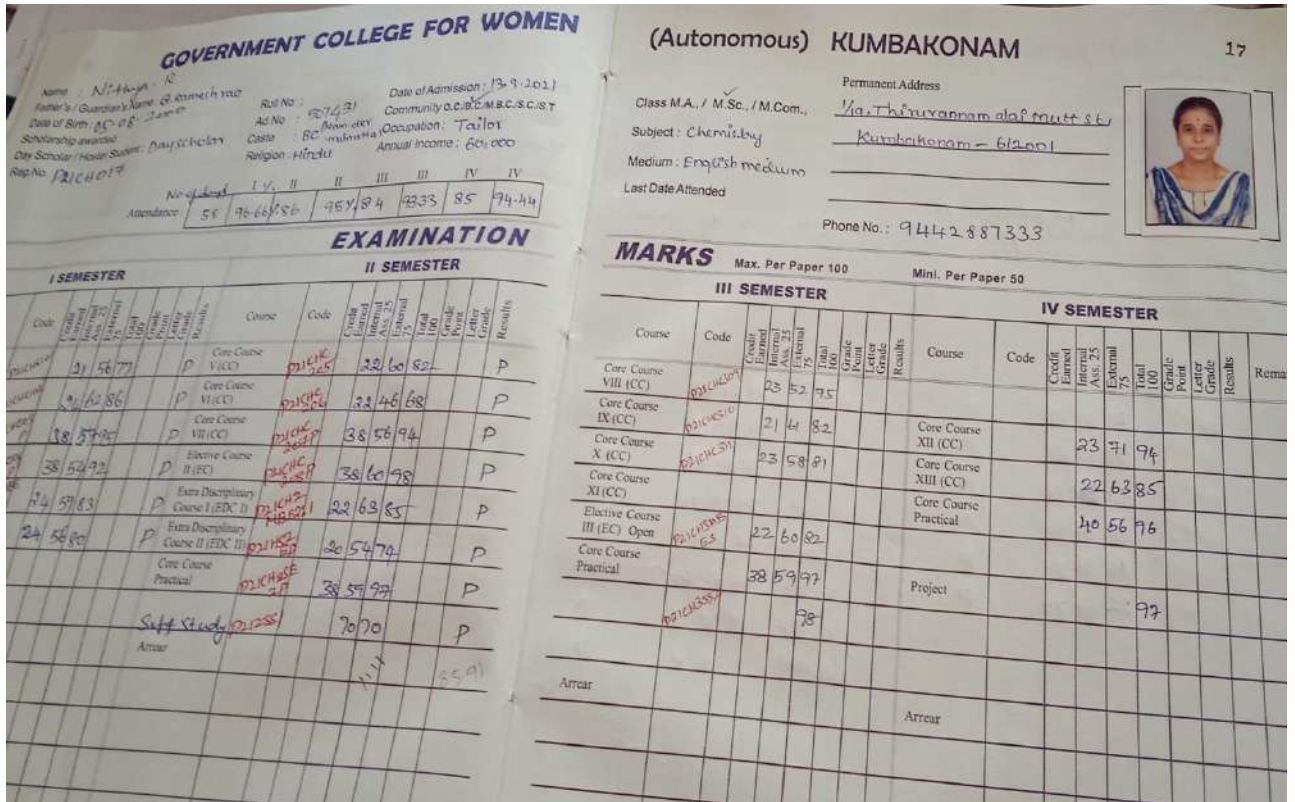 GOVERNMENT COLLEGE FOR WOMEN
(Autonomous) KUMBAKONAM
17
Name : Nithya. R
Father's / Guardian's Name G. Ramesh rao
Date of Birth : 05.08.2000
Scholarship awarded
Day Scholar / Hostel Student : Day scholar
Reg.No. P21CH017
Roll No :
Ad.No : 507431
Caste : BC
Religion : Hindu
Date of Admission : 13.9.2021
Community O.C/B.C/M.B.C/S.C/S.T
Occupation : Tailor
Annual Income : 60,000
I y. II II III III IV IV
Attendance 58 96.66 86 95 84 9333 85 94.44
Class M.A., / M.Sc., / M.Com.,
Subject : Chemistry
Medium : English medium
Last Date Attended
Permanent Address
1/19, Thiruvannamalai mutt st,
Kumbakonam - 612001
Phone No. : 9442887333
EXAMINATION
MARKS Max. Per Paper 100 Mini. Per Paper 50
I SEMESTER
Code Credit Earned Internal Ass. 25 External 75 Total 100 Grade Point Letter Grade Results
21 56 77 P
62 86 P
38 57 95 P
38 54 92 P
24 59 83 P
24 56 80 P
II SEMESTER
Course Code Credit Earned Internal Ass. 25 External 75 Total 100 Grade Point Letter Grade Results
Core Course V (CC) 22 60 82 P
Core Course VI (CC) 22 46 68 P
Core Course VII (CC) 38 56 94 P
Elective Course II (EC) 38 60 98 P
Extra Discriplinary Course I (EDC I) 22 63 85 P
Extra Discriplinary Course II (EDC II) 20 54 74 P
Core Course Practical 38 59 97 P
Self Study 90 90 P
Arrear
III SEMESTER
Course Code Credit Earned Internal Ass. 25 External 75 Total 100 Grade Point Letter Grade Results
Core Course VIII (CC) 23 52 75
Core Course IX (CC) 21 61 82
Core Course X (CC) 23 58 81
Core Course XI (CC)
Elective Course III (EC) Open 22 60 82
Core Course Practical 38 59 97
98
Arrear
IV SEMESTER
Course Code Credit Earned Internal Ass. 25 External 75 Total 100 Grade Point Letter Grade Results Rema
Core Course XII (CC) 23 71 94
Core Course XIII (CC) 22 63 85
Core Course Practical 40 56 96
Project 97
Arrear